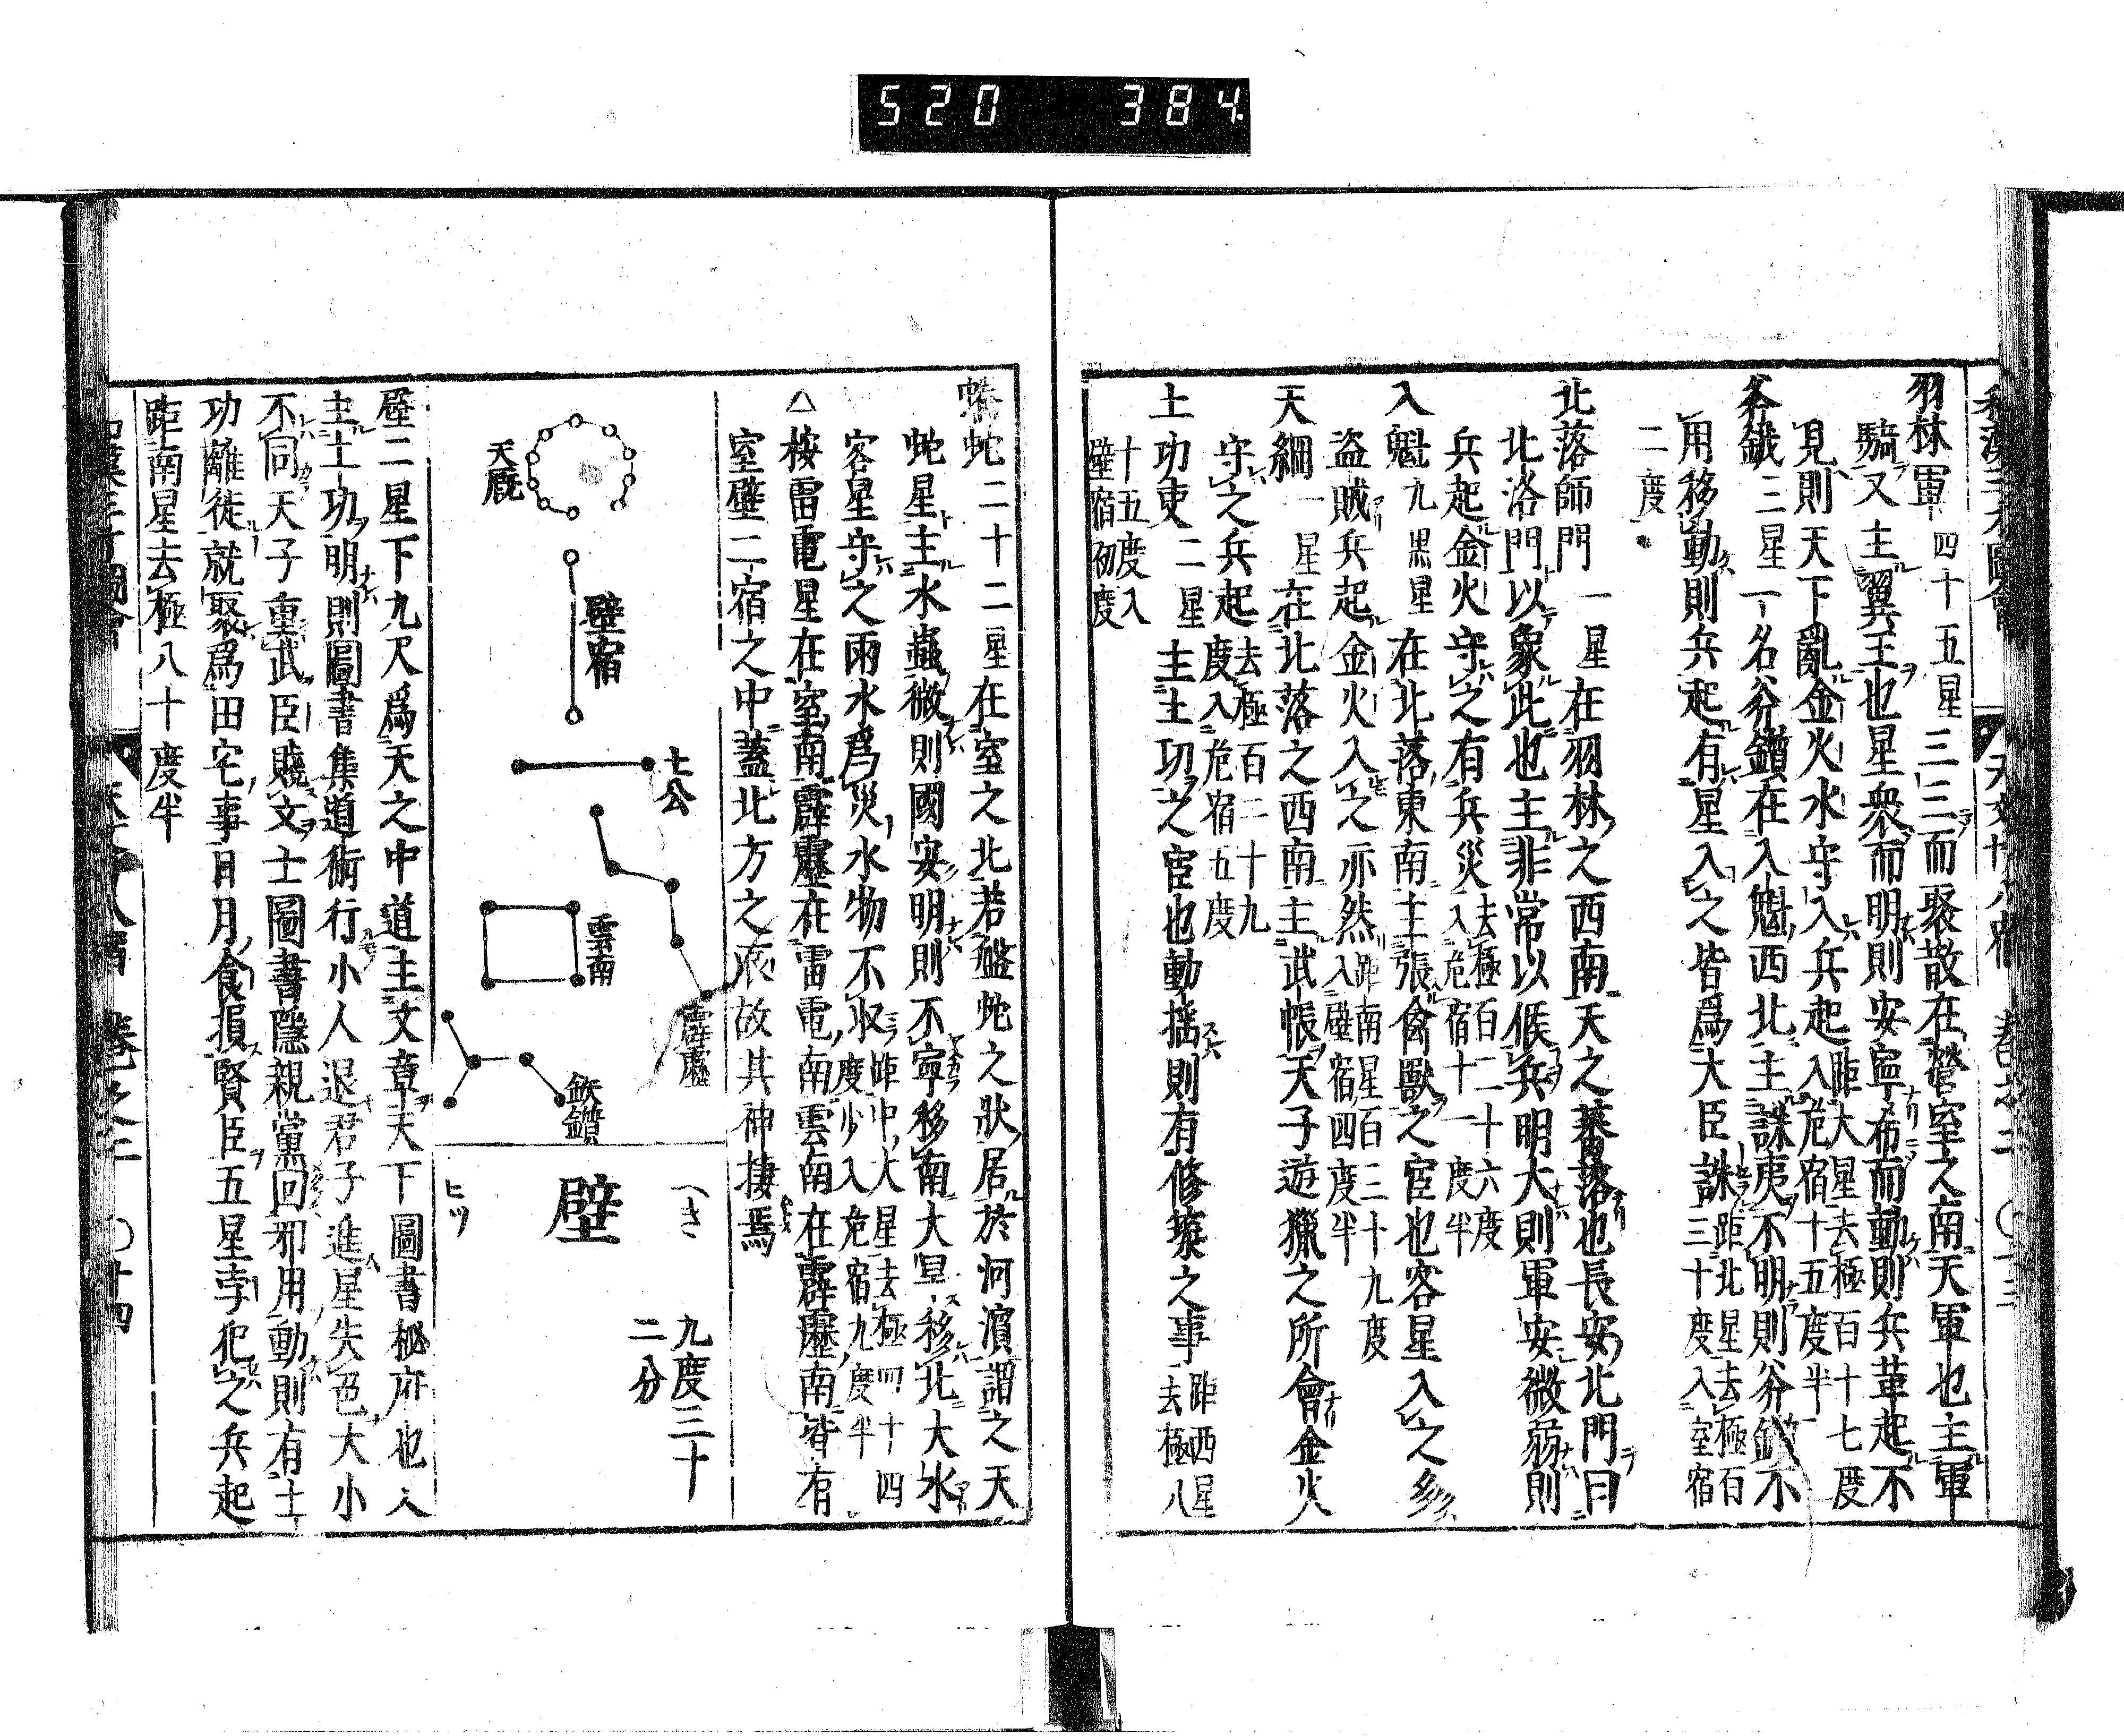 520 384.
和漢三才圖會 天文廿八宿 卷之二 〇十三
羽林軍 四十五星三三而聚散在營室之南天軍也主軍
騎又主翼王也星衆而明則安寧希而動則兵革起不
見則天下亂金火水守入兵起 距大星去極百十七度
入危宿十五度半
斧鉞 三星一名斧鑕在入魁西北主誅夷不明則斧鉞不
用移動則兵起有星入之皆爲大臣誅 距北星去極百
三十度入室宿
二度
北落師門 一星在羽林之西南天之蕃落也長安北門曰
北洛門以象此也主非常以候兵明大則軍安微弱則
兵起金火守之有兵災 去極百二十六度
入危宿十一度半
入魁 九黒星在北落東南主張禽獸之官也客星入之多
盜賊兵起金火入之亦然 距南星百三十九度
入壁宿四度半
天綱 一星在北落之西南主武帳天子遊獵之所會金火
守之兵起 去極百二十九
度入危宿五度
土功吏 二星主土功之官也動搖則有修築之事 距西星
去極八
十五度入
壁宿初度
螣蛇二十二星在室之北若盤蛇之狀居於河濱謂之天
蛇星主水蟲微則國安明則不寧移南大旱移北大水
客星守之雨水爲災水物不収 距中大星去極四十四
度少入危宿九度半
△桉雷電星在室南霹靂在雷電南雲南在霹靂南皆有
室壁二宿之中蓋北方之 故其神棲焉
天厩
壁宿
土公
雲南
霹靂
鈇鑕
壁
へき
ヒツ
九度三十
二分
壁二星下九尺爲天之中道主文章天下圖書秘府也又
主土功明則圖書集道術行小人退君子進星失色大小
不同天子重武臣賤文士圖書隱親黨回邪用動則有土
功離徙就聚爲田宅事日月食損賢臣五星孛犯之兵起
距南星去極八十度半
卷之二 〇十四